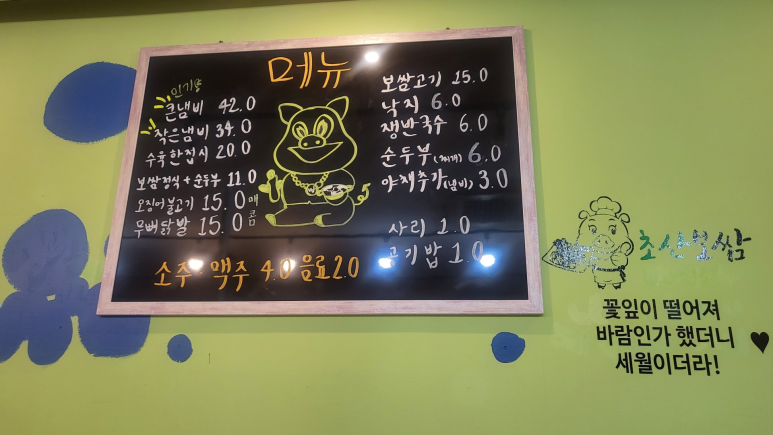 메뉴
인기
큰냄비 42.0
작은냄비 34.0
수육한접시 20.0
보쌈정식+순두부 11.0
오징어불고기 15.0
무뼈닭발 15.0
매콤
보쌈고기 15.0
낙지 6.0
쟁반국수 6.0
순두부(찌개) 6.0
야채추가(냄비) 3.0
사리 1.0
공기밥 1.0
소주·맥주 4.0 음료 2.0
초산보쌈
꽃잎이 떨어져
바람인가 했더니
세월이더라!